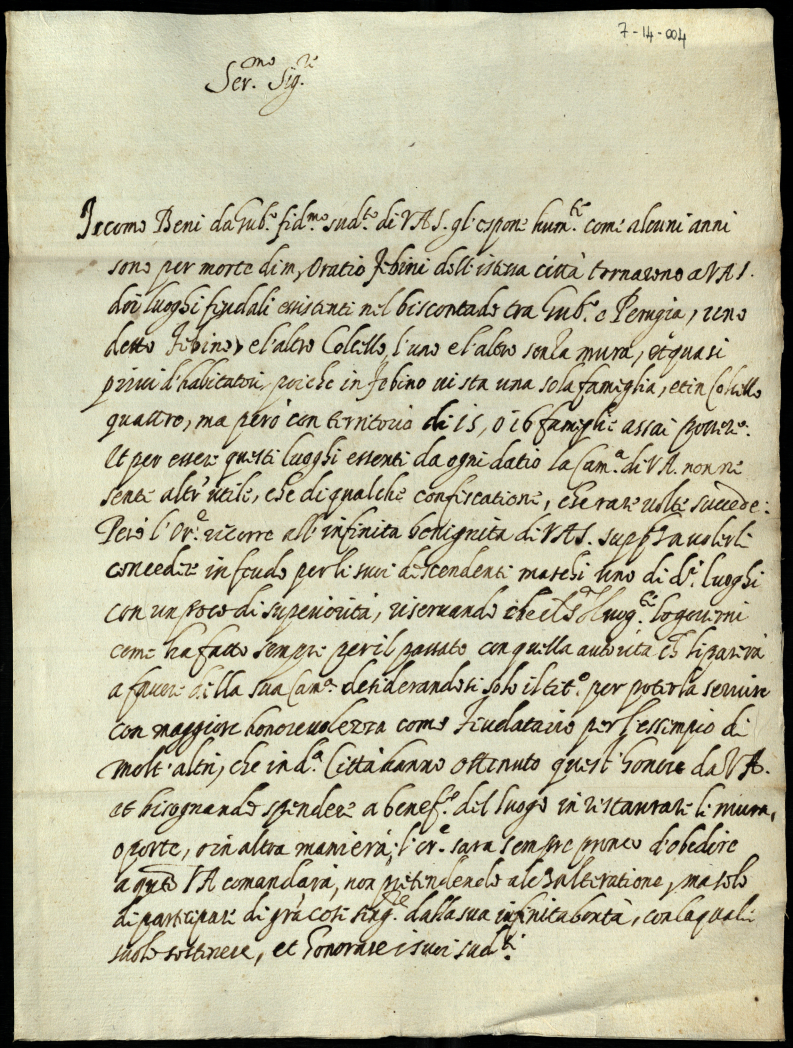 7-14-004
Ser.mo Sig.re
Jacomo Beni da Gub.o fid.mo sud.to di V A S. gl'espone hum.te come alcuni anni
sono per morte di m, Oratio Febini dell'istessa città tornarono a V A S.
doi luoghi feudali essistenti nel biscontado tra Gub.o e Perugia, uno
detto Febino, e l'altro Colcello, l'uno e l'altro senza mura, et quasi
privi d'habitatori, poiche in Febino vi sta una sola famiglia, et in Colcello
quattro, ma però con territorio di 15, o 16 famiglie assai povere:
Et per essere questi luoghi essenti da ogni datio la Cam.a di V A. non ne
sente altr'utile, che di qualche confiscatione, che rare volte succede:
Però l'Or.e ricorre all'infinita benignita di V A S. supp.la volerli
concedere in feudo per li suoi descendenti maschi uno di d.i luoghi
con un poco di superiorità, riservando che el luog.te lo governi
come ha fatto sempre per il passato con quella autorità che li parerà
a favore della sua Cam.a desiderandosi solo il tit.o per poterla servire
con maggiore honorevolezza come Feudatario per l'essempio di
molt'altri, che in d.a Città hanno ottenuto quest'honore da V A.
et bisognando spendere a benef.o del luogo in restaurare le mura,
o porte, o in altra maniera, l'or.e sara sempre pronto d'obedire
a q.to V A comandarà, non pretendendo altra alteratione, ma solo
di participare di gra così sing.re dalla sua infinita bontà, con la quale
suole sostenere, et honorare i suoi sud.ti